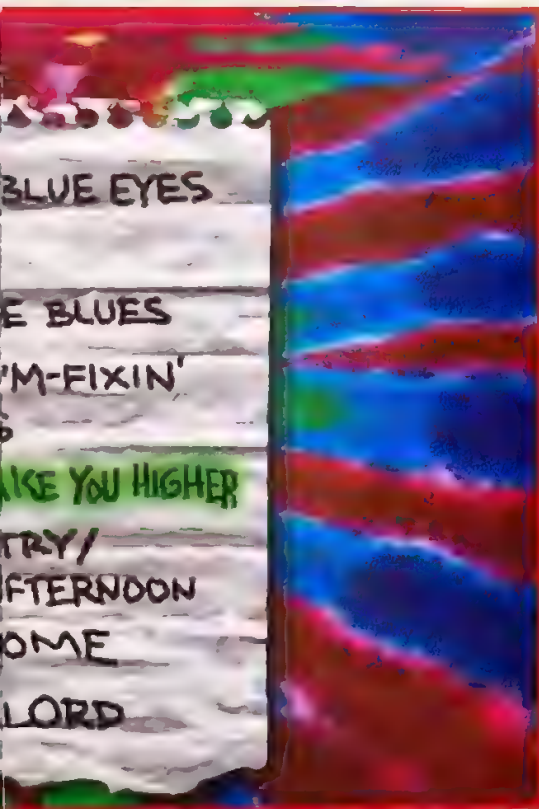 BLUE EYES
E BLUES
'M-FIXIN'
AKE YOU HIGHER
TRY/
FTERNOON
OME
LORD